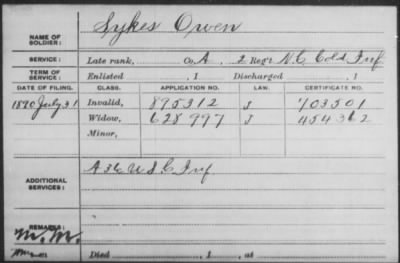 Sykes Owen
NAME OF SOLDIER:
SERVICE: Late rank, Co. A, 2 Regt. N.C. Cold Inf
TERM OF SERVICE: Enlisted , 1 Discharged , 1
DATE OF FILING. CLASS. APPLICATION NO. LAW. CERTIFICATE NO.
1890 July 31 Invalid, 895312 J 703501
Widow, 628997 J 454362
Minor,
ADDITIONAL SERVICES: A 36 U S C Inf
REMARKS:
M.M.
Died , 1 , at